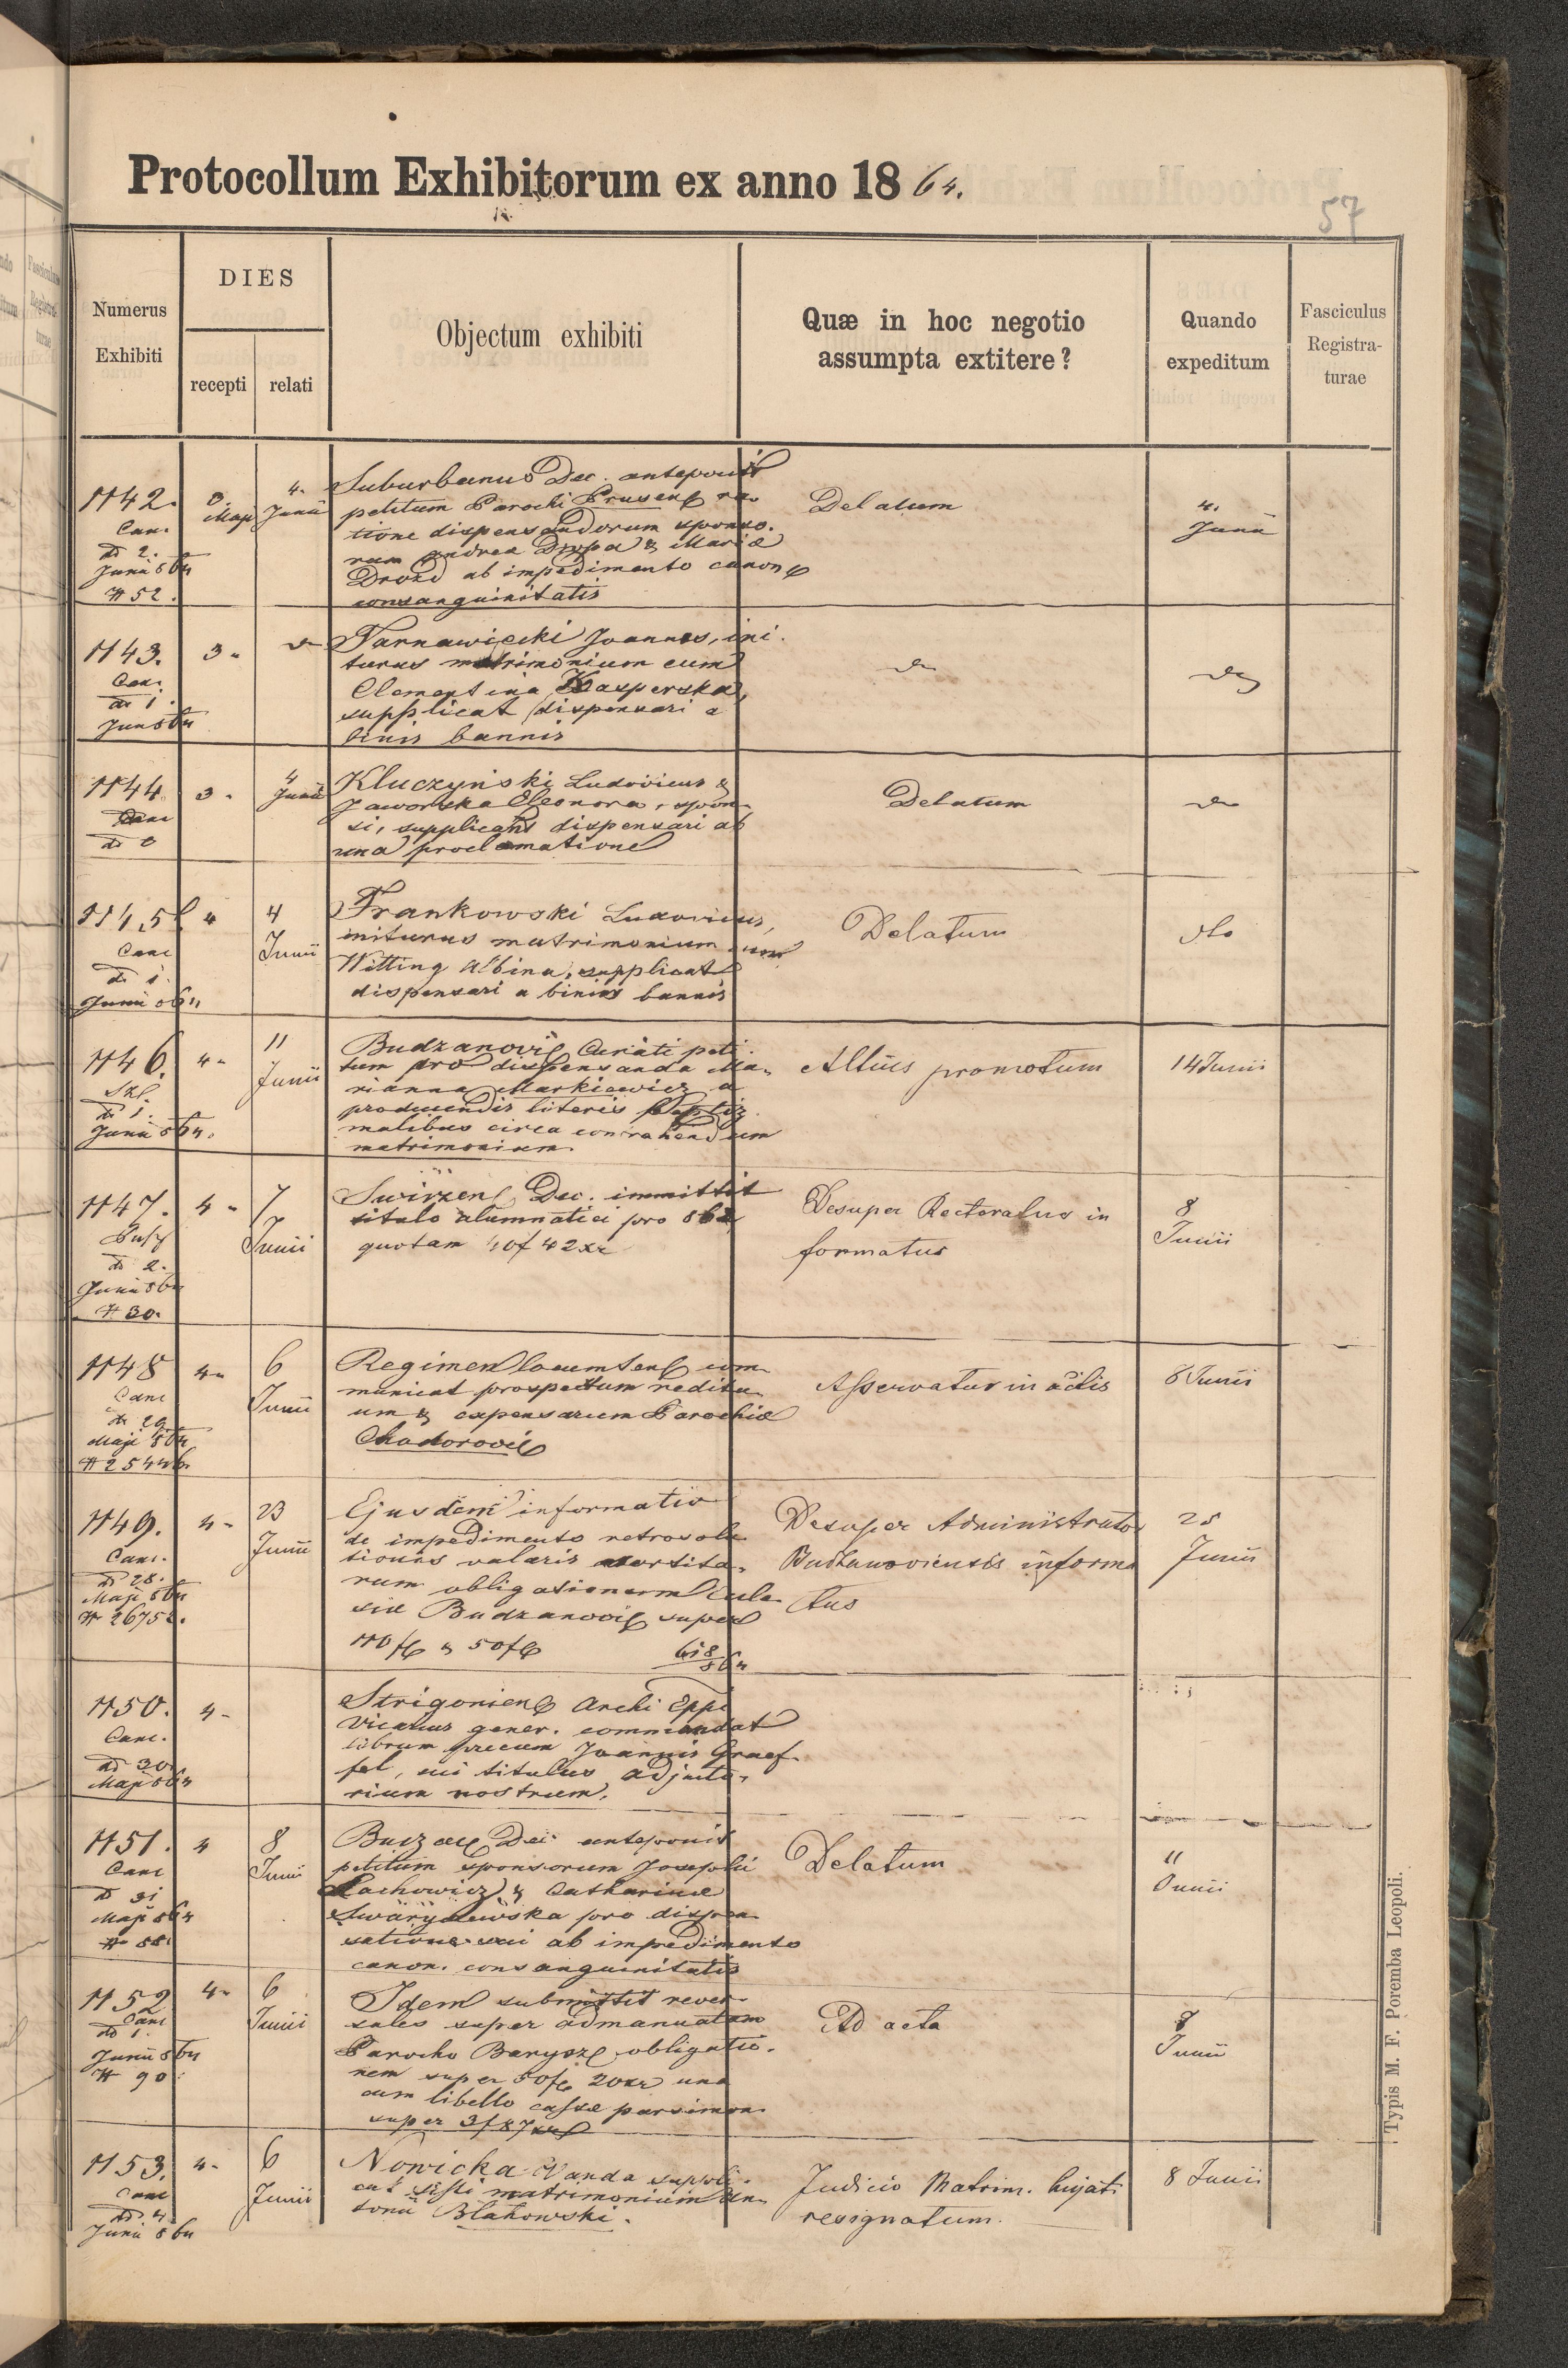 Protocollum Exhibitorum ex anno 1864.
57
Numerus Exhibiti
DIES
recepti
relati
Objectum exhibiti
Quæ in hoc negotio
assumpta extitere?
Quando
expeditum
Fasciculus
Registra-
turae
1142.
Canc.
dd 2.
Junii 864
# 52.
3.
4.
Junii
Suburbanus Dec. anteponit
petitum Parochi Prusen ra-
tione dispensandorum sponso-
rum Andrea & Mariæ
Drozd ab impedimento canon
consanguinitatis
Delatum
4.
Junii
1143.
Canc.
dd 1.
Jun 864
3 "
Tarnawiecki Joannes, ini-
turus matrimonium cum
Clementina Kasperska,
supplicat dispensari a
binis bannis
1144
Canc
3 "
4
Junii
Kluczyński Ludovicus &
Jaworska Eleonora, spon-
si, supplicant dispensari ab
una proclamatione
Delatum
1145
Canc
dd 1.
Junii 864
4
4
Junii
Frankowski Ludovicus,
initurus matrimonium cum
Witting Albina, supplicat
dispensari a binis bannis
Delatum
dto
1146.
dd 1.
Junii 864.
4 "
11
Junii
Budzanovi Curati peti-
tum pro dispensanda Ma-
rianna Markiewicz a
producendis literis baptiz-
malibus circa contrahendum
matrimonium.
Altius promotum
14 Junii
1147.
dd 2.
Junii 864
# 30.
4 "
7
Junii
Swirzen Dec. immittit
titulo alumnatici pro 862
quotam 10f 42xr
Desuper Rectoratus in
formatus
8
Junii
1148
Canc
dd 29
Maji 864
4 "
6
Junii
Regimen locumten com-
municat prospectum redituu-
um & expensarum Parochiæ
Chodorovi
Asservatur in actis
8 Junii
1149.
Canc.
dd 28.
Maji 864
# 26752.
4 "
23
Junii
Ejusdem informatio
de impedimento retrosolu-
tionis valoris sortita-
rum obligationum Eccle-
siæ Budzanovi super
110 f & 50 f
618/864
Desuper Administrator
Budzanoviensis informa
tus
25
Junii
1150.
Canc.
dd 30
Maji 864
4 "
Strigonien Archi Eppi
vicarius gener. commendat
librum precum Joannis Graef-
fel, cui titulus adjuto-
rium nostrum.
1151.
Canc
dd 31
Maji 864
# 88
4
8
Junii
Buczac Dec. anteponit
petitum sponsorum Josephi
Lachowicz & Catharinæ
pro dispen-
satione sui ab impedimento
canon. consanguinitatis
Delatum
11
Junii
1152
Canc
dd 1.
Junii 864
# 90
4 "
6
Junii
Idem submittit rever-
sales super admanuatam
Parocho Barysz obligatio-
nem super 50 f 20xr una
cum libello cassæ parsimon.
super 3f 87 xr
Ad acta
8
Junii
1153.
Canc
dd 4
Junii 864
4 "
6
Junii
Nowicka Wanda suppli-
cat sisti matrimonium An-
tonii Blahowski.
Judicio Matrim. hujati
resignatum.
8 Junii
Typis M. F. Poremba Leopoli.